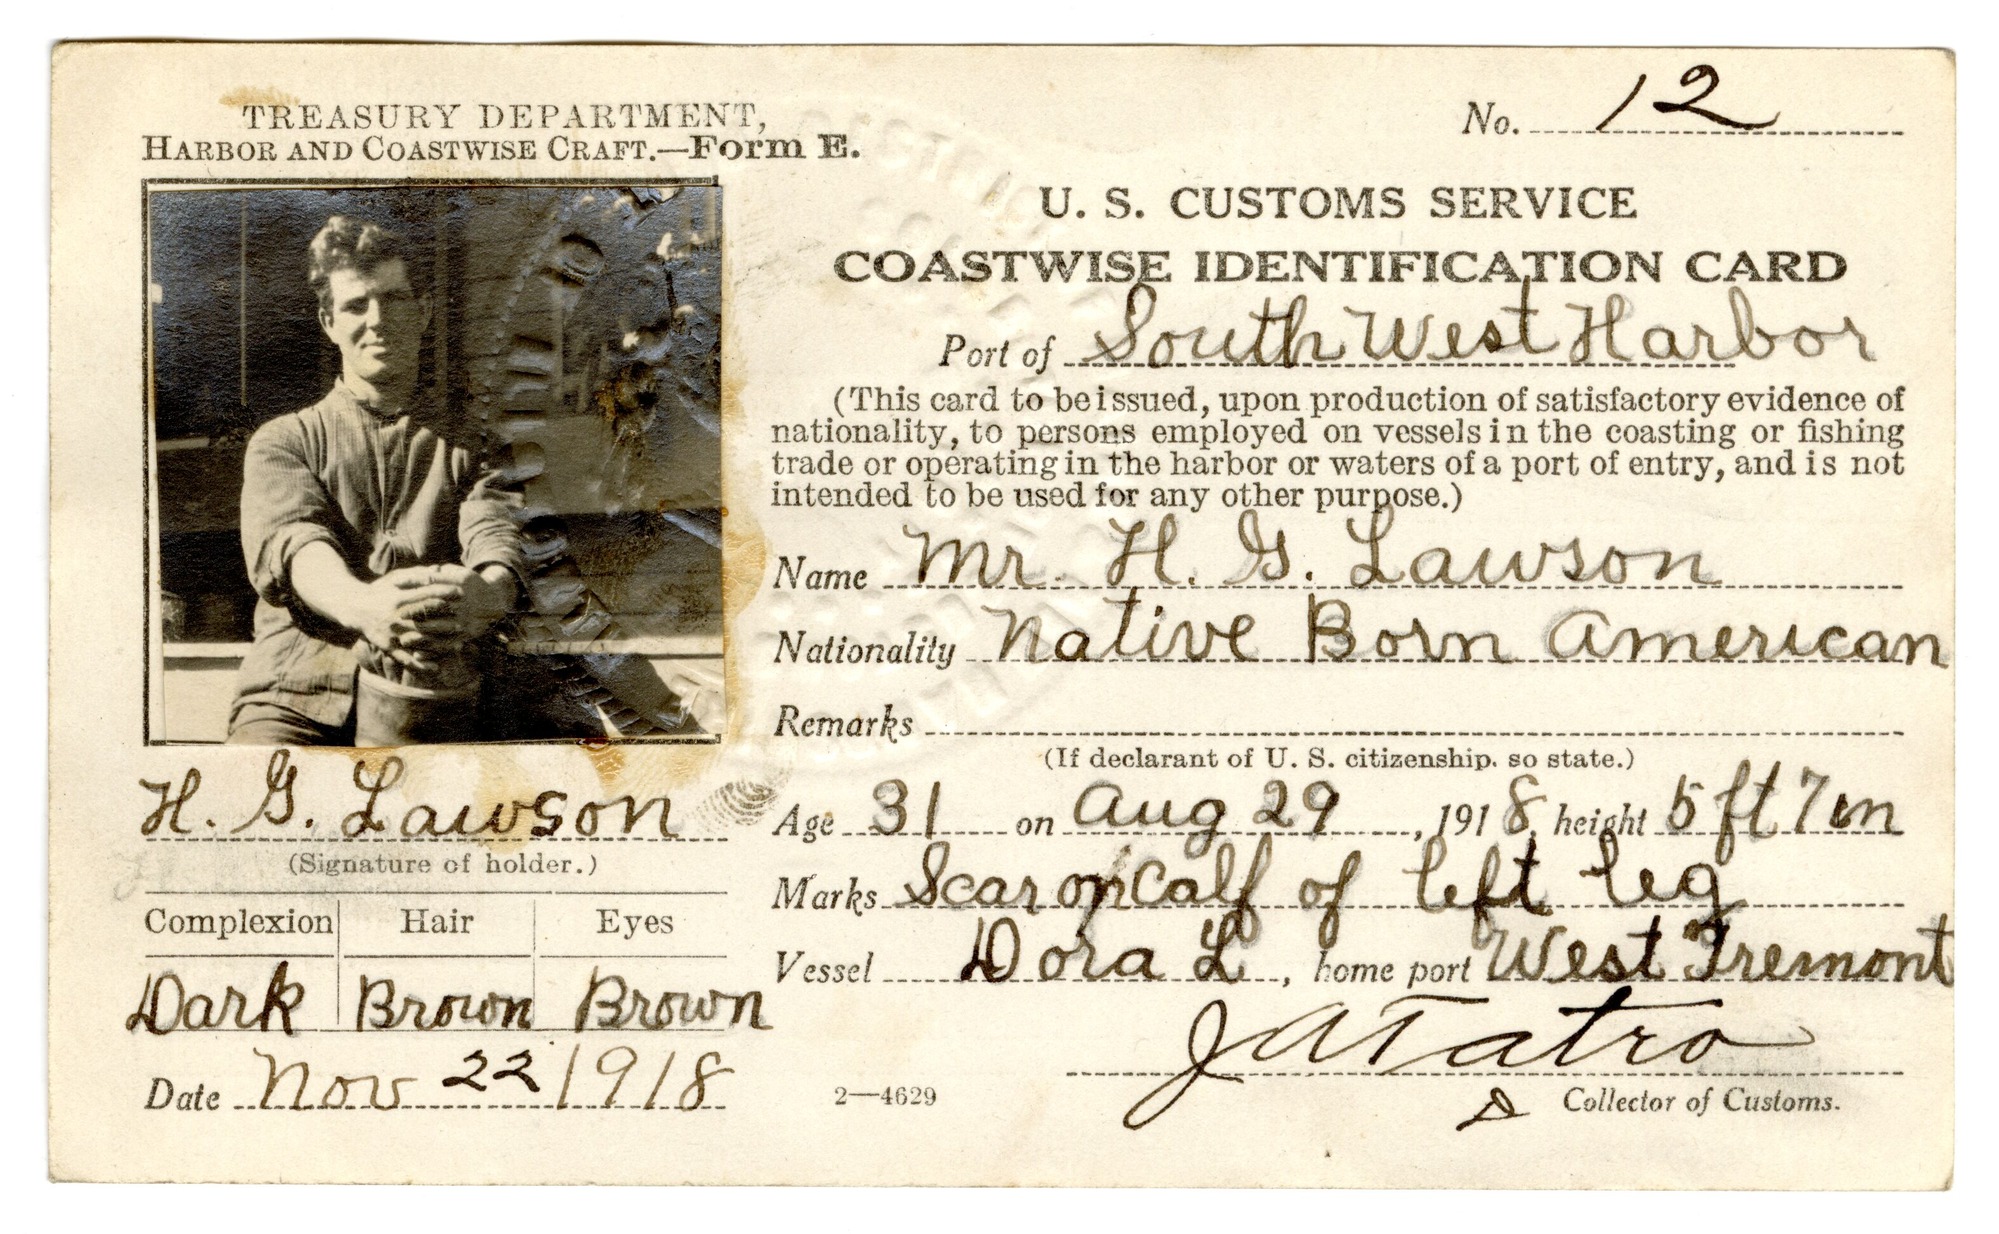 TREASURY DEPARTMENT,
HARBOR AND COASTWISE CRAFT.—Form E.
No. 12
U. S. CUSTOMS SERVICE
COASTWISE IDENTIFICATION CARD
Port of South West Harbor
(This card to be issued, upon production of satisfactory evidence of
nationality, to persons employed on vessels in the coasting or fishing
trade or operating in the harbor or waters of a port of entry, and is not
intended to be used for any other purpose.)
Name Mr. H. G. Lawson
Nationality Native Born American
Remarks
(If declarant of U. S. citizenship, so state.)
Age 31 on Aug 29, 1918, height 5 ft 7 in
Marks Scar on Calf of left leg
Vessel Dora L, home port West Tremont
J A Tatro
Collector of Customs.
H. G. Lawson
(Signature of holder.)
Complexion Hair Eyes
Dark Brown Brown
Date Nov 22 1918
2—4629